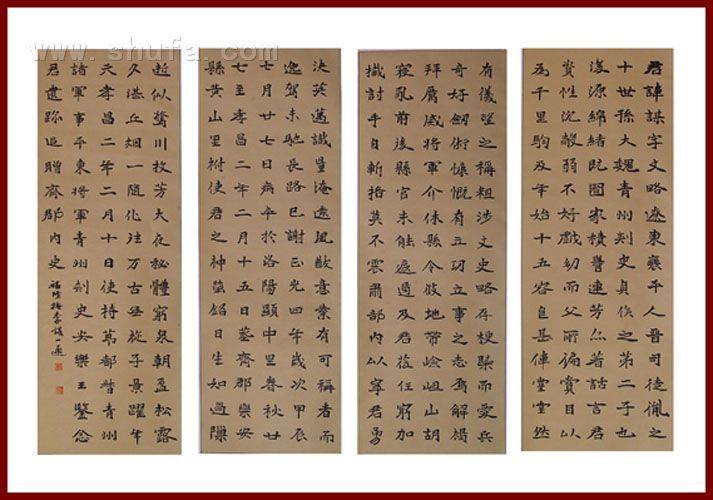 www.shufa.com
君諱謀字文略遼東襄平人晉司徒胤之
十世孫大魏青州刺史貞侯之第二子也
濬源綿緒既圖家積譽連芳亦著話言君
資性沈敏弱不好戲幼而父所偏賞目以
為千里駒及年始十五容甚偉靈靈然
有儀望之稱粗涉文史略存梗槩而愛兵
奇好劍術慷慨有立功立事之志焉解褐
拜厲威將軍介休縣令彼地帶嶮岨山胡
寇亂前後縣官未能遏及君莅任窮加
擒討手自斬格莫不震肅部內以寧君勇
決英邁識量淹遠風猷意業有可稱者而
逸駕未馳長路已謝正光四年歲次甲辰
七月廿七日病卒於洛陽顯中里春秋廿
七至孝昌二年二月十五日葬齊郡樂安
縣黃山里祔使君之神塋銘曰生如過隙
逝似驚川收芳大夜秘體窮泉朝盈松露
夕湛丘烟一隨化往万古空旋子景躍年
大孝昌二年二月十日使持節都督青州
諸軍事平東將軍青州刺史安樂王鑒念
君遺跡追贈齊郡內史